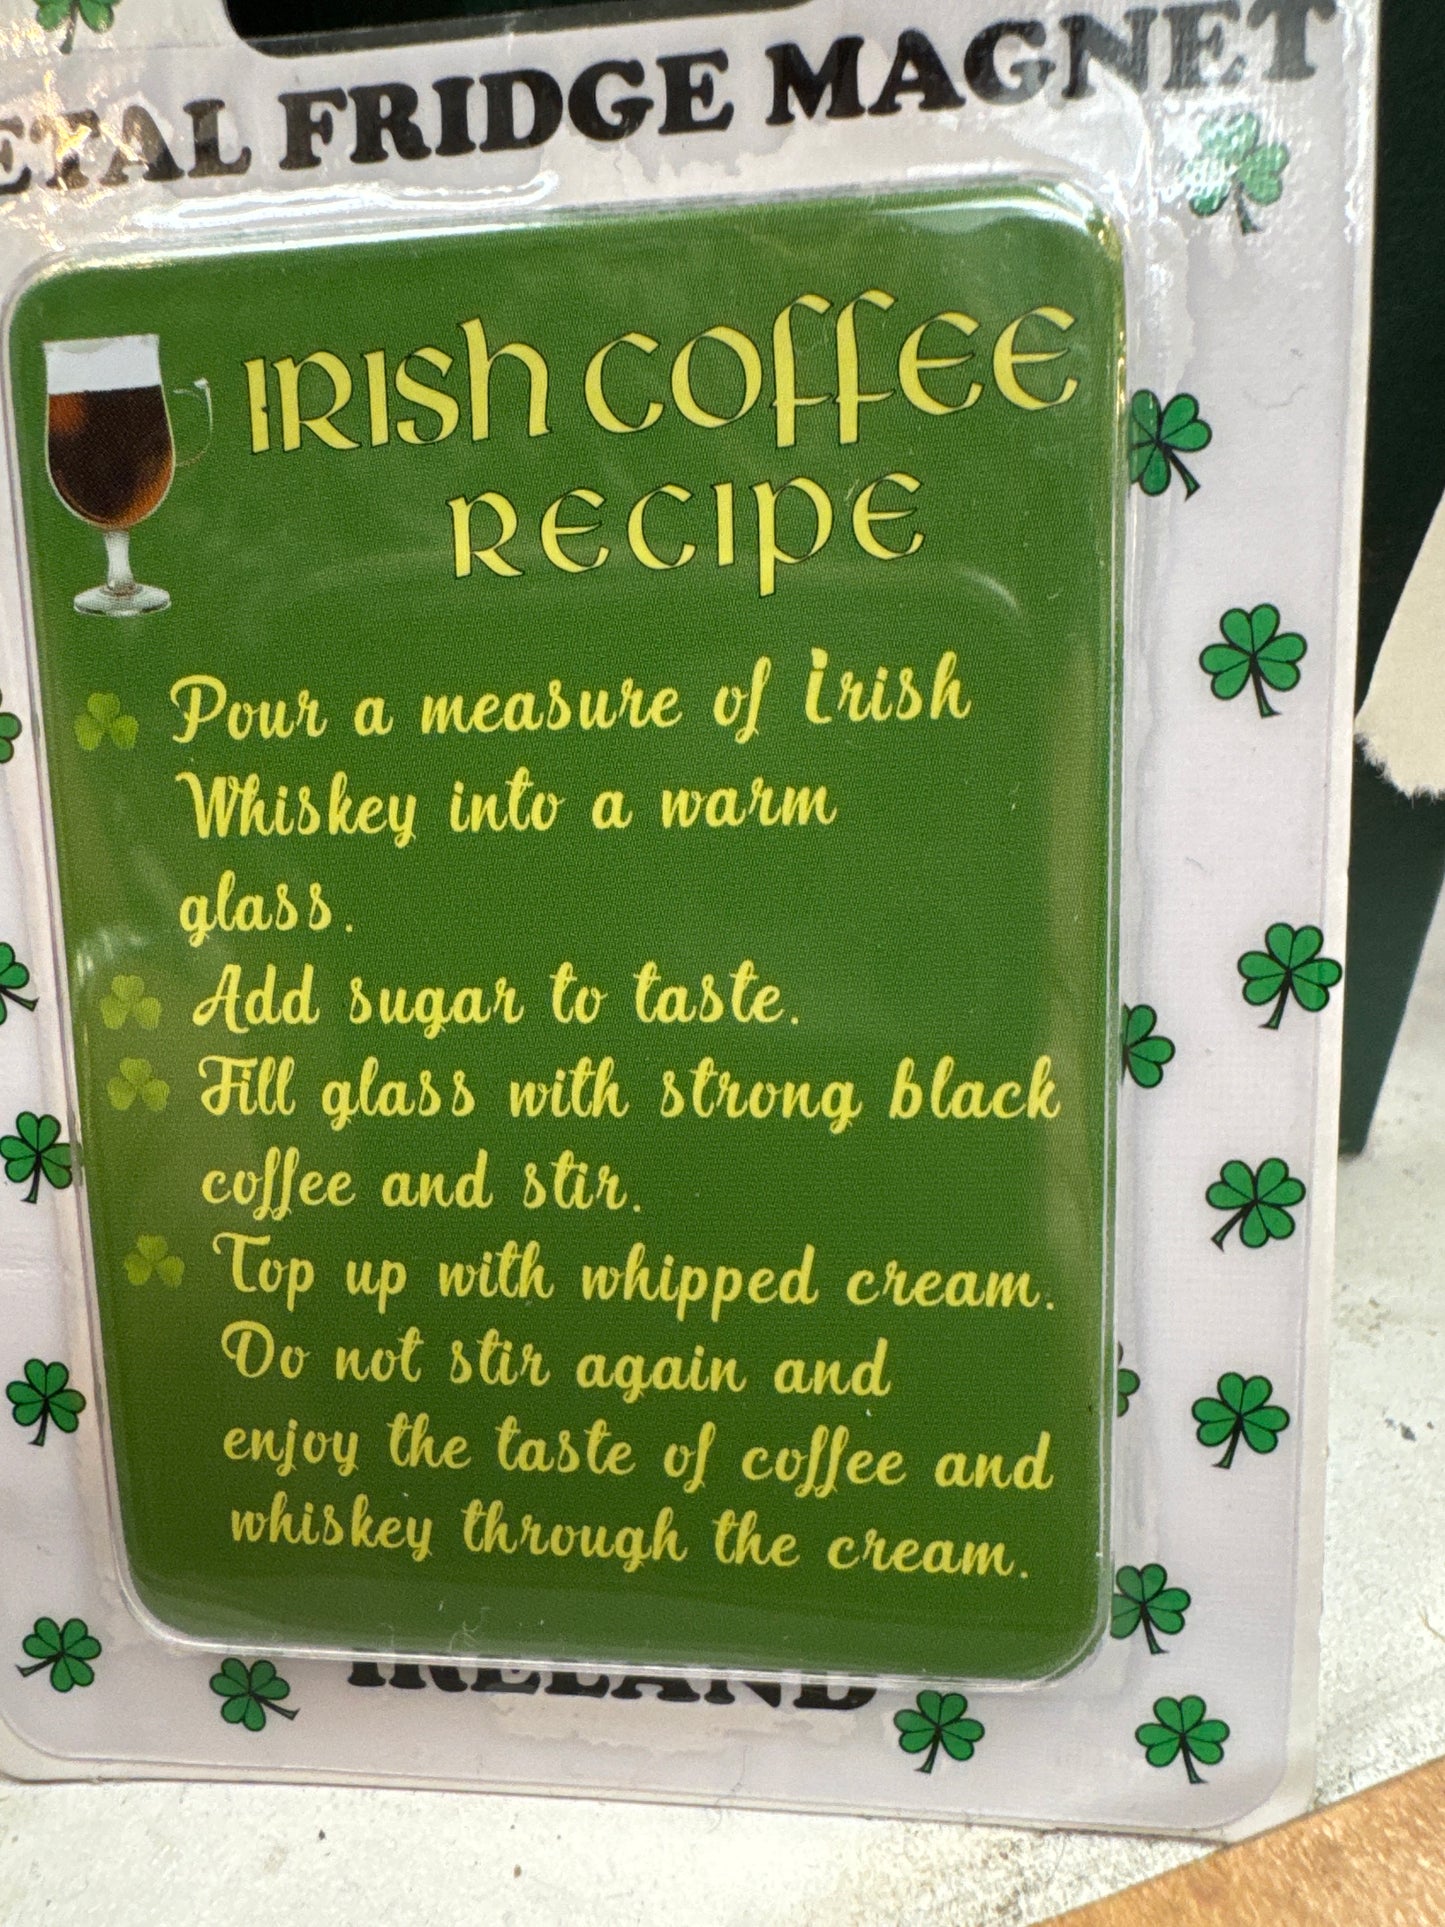 ETAL FRIDGE MAGNET
IRISH COFFEE
RECIPE
Pour a measure of Irish
Whiskey into a warm
glass.
Add sugar to taste.
Fill glass with strong black
coffee and stir.
Top up with whipped cream.
Do not stir again and
enjoy the taste of coffee and
whiskey through the cream.
IRELAND